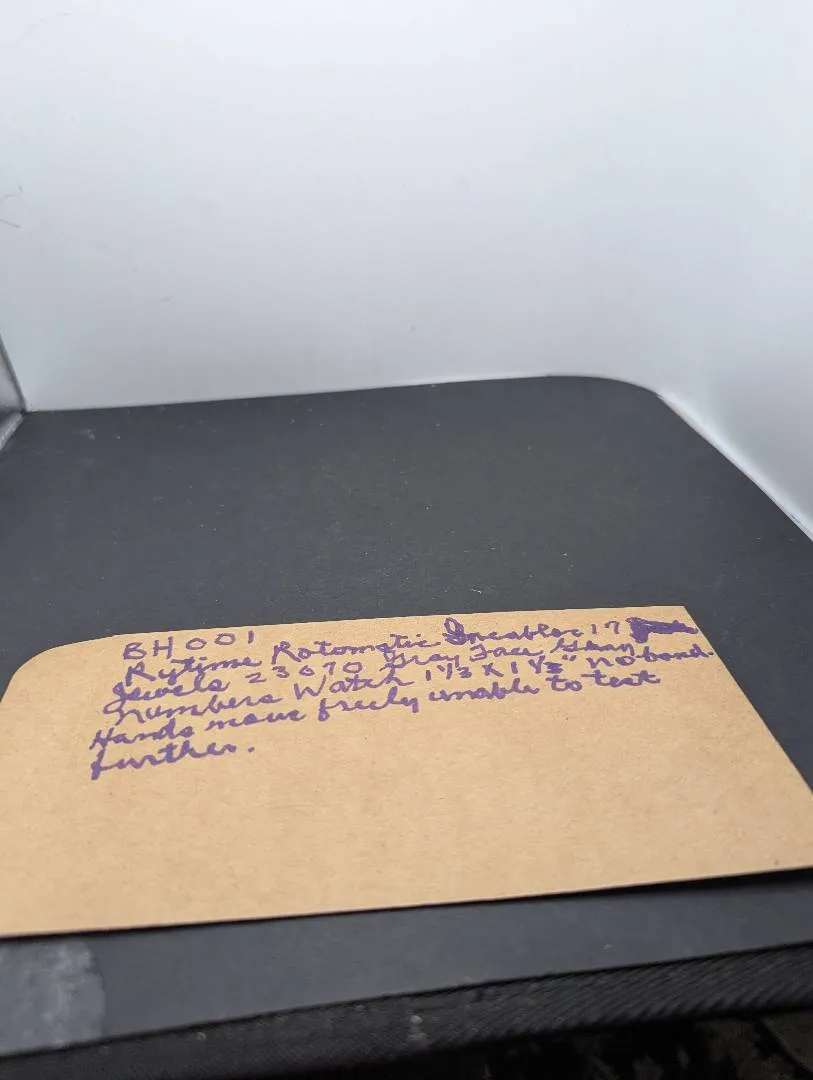 BH001
Rytime Rotomatic Incabloc 17
Jewels 23070 Gray Face Gray
numbers Watch 1 1/2 x 1 1/2" no band.
Hands move freely unable to test
further.